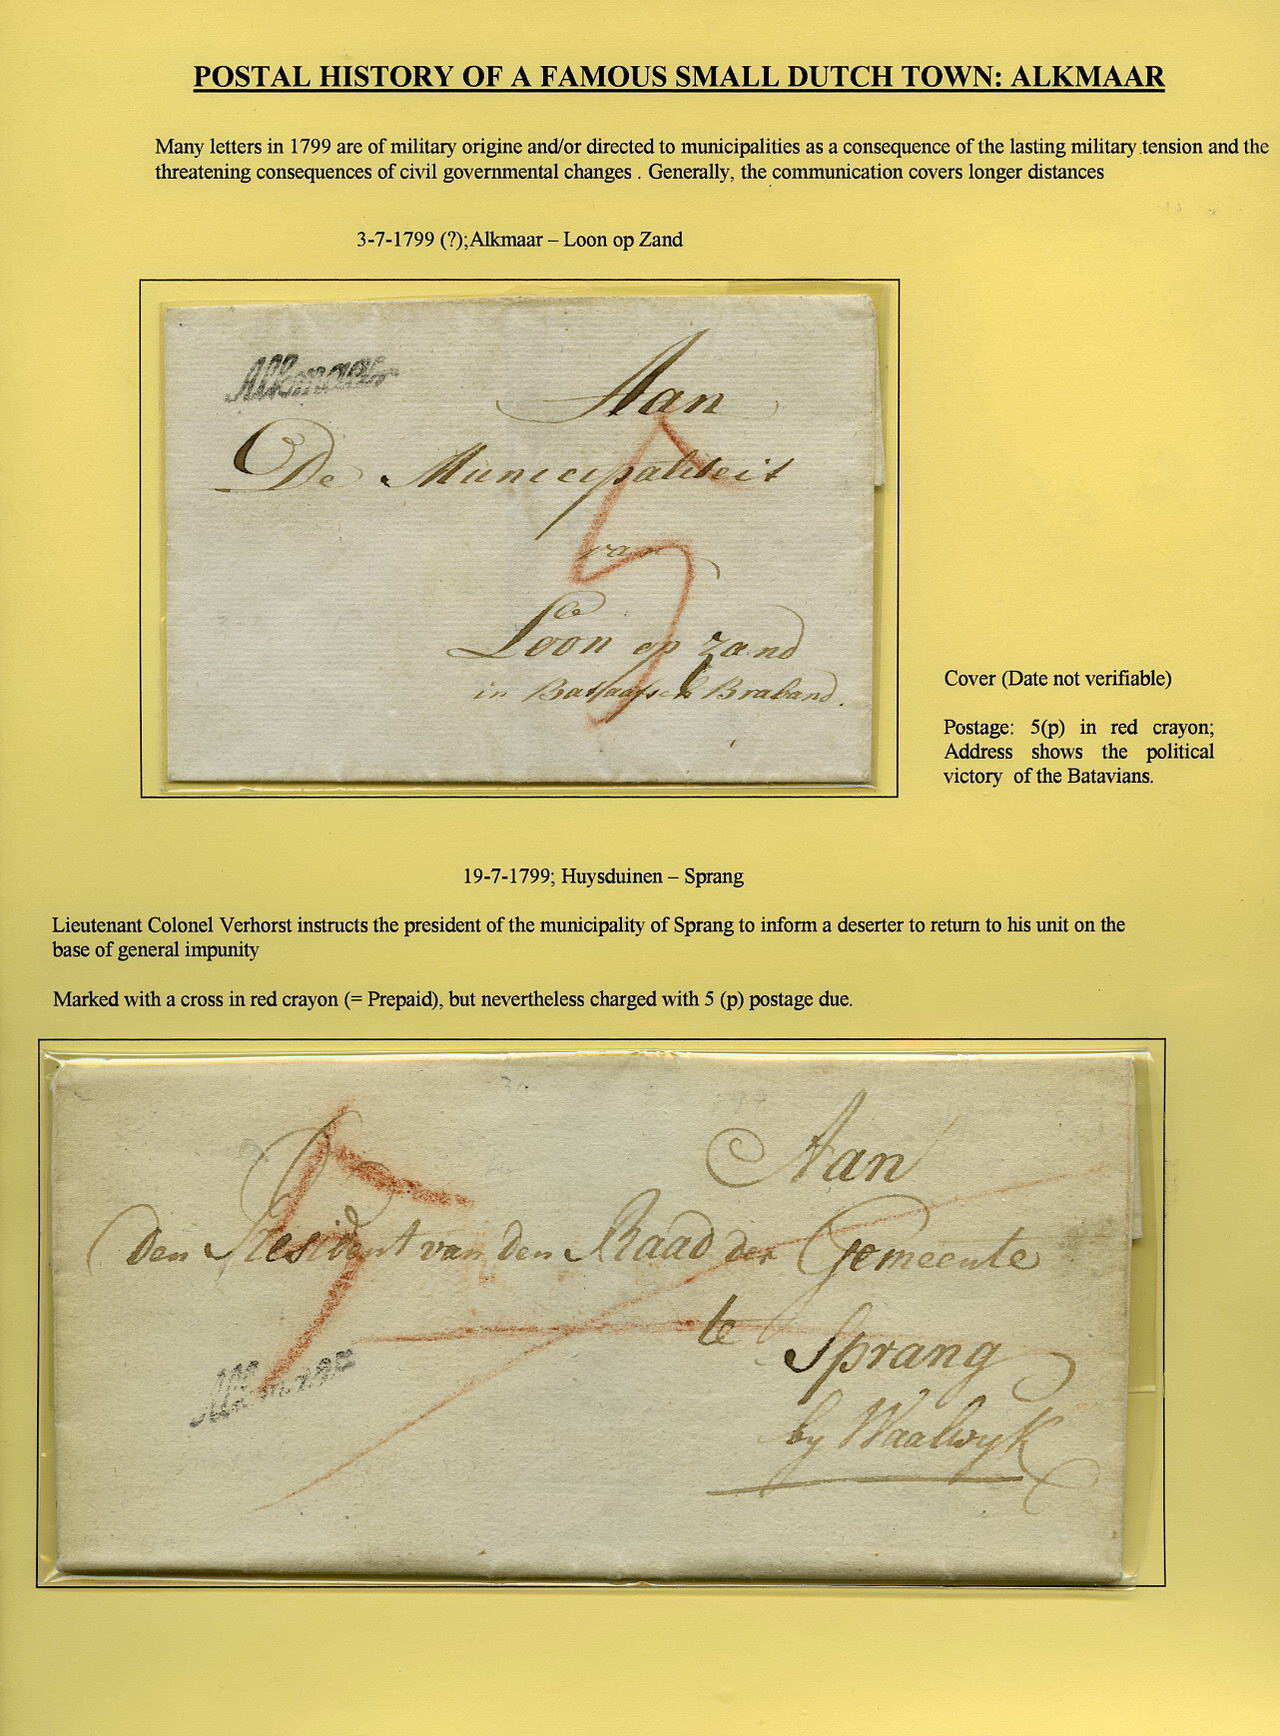 POSTAL HISTORY OF A FAMOUS SMALL DUTCH TOWN: ALKMAAR
Many letters in 1799 are of military origine and/or directed to municipalities as a consequence of the lasting military tension and the
threatening consequences of civil governmental changes . Generally, the communication covers longer distances
3-7-1799 (?);Alkmaar – Loon op Zand
Alkmaar
Aan
De Municipaliteit
van
Loon op zand
in Bataafsch Braband.
5
Cover (Date not verifiable)
Postage: 5(p) in red crayon;
Address shows the political
victory of the Batavians.
19-7-1799; Huysduinen – Sprang
Lieutenant Colonel Verhorst instructs the president of the municipality of Sprang to inform a deserter to return to his unit on the
base of general impunity
Marked with a cross in red crayon (= Prepaid), but nevertheless charged with 5 (p) postage due.
Aan
den President van den Raad der Gemeente
te Sprang
by Waalwyk
5
Alkmaar